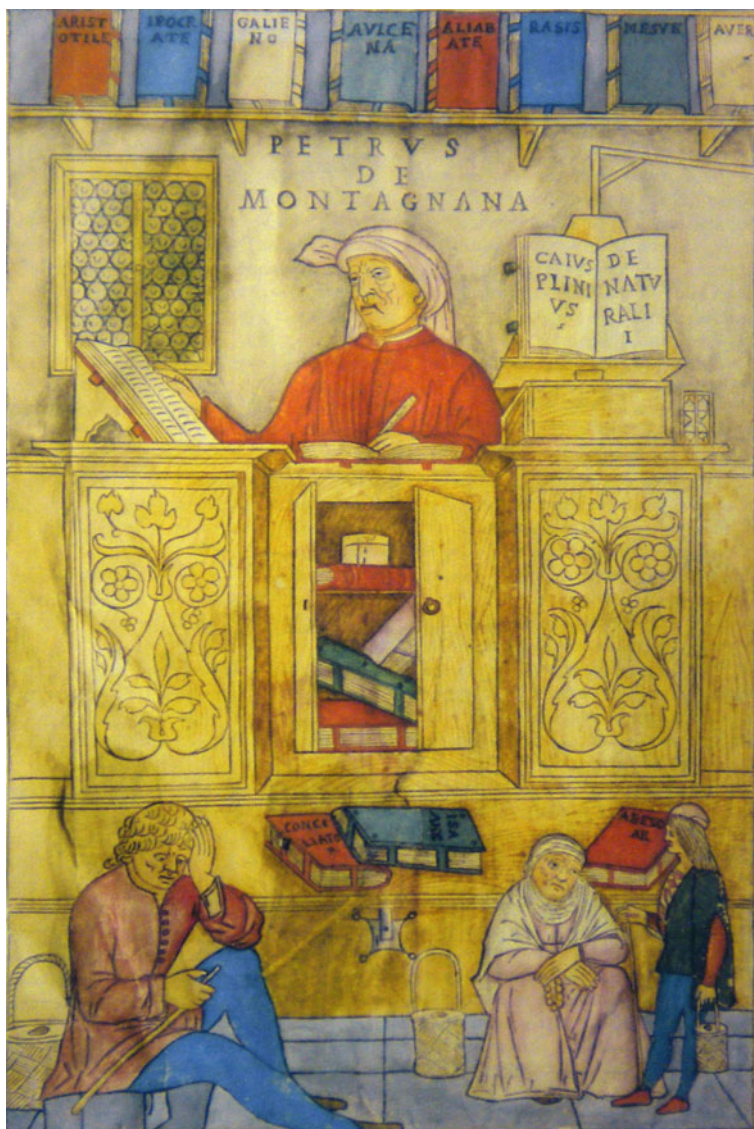 ARIST
OTILE
IPOCR
ATE
GALIE
NO
AVICE
NA
ALIAB
ATE
RASIS
MESVE
AVER
PETRVS
DE
MONTAGNANA
CAIVS
PLINI
VS
DE
NATV
RALI
I
CONCI
LIATO
R
ISA